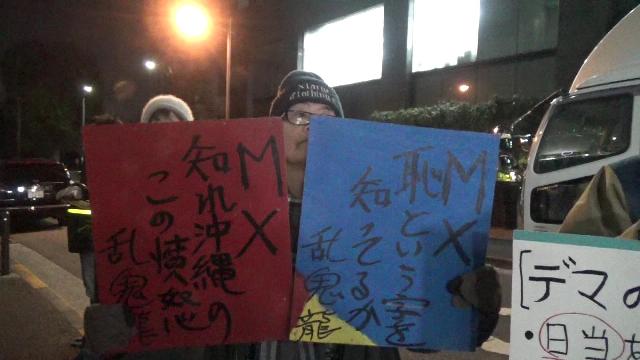 MX
知れ沖縄の
この憤怒
乱鬼龍
MX
恥という字を
知ってるか
乱鬼龍
[デマの
・日当